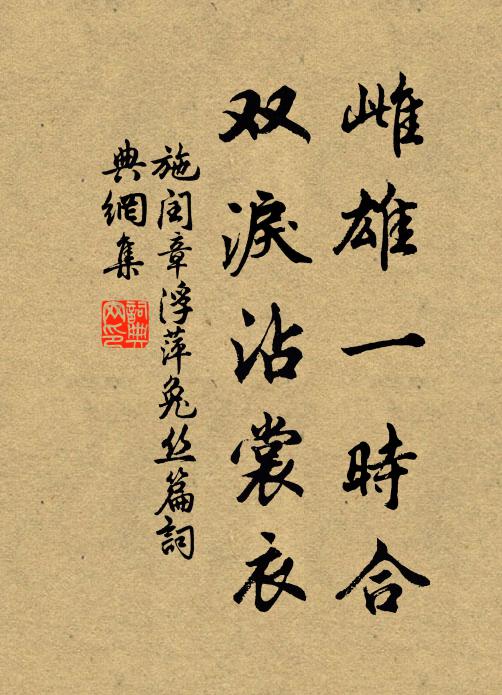 雌雄一時合
双淚沾裳衣
施闰章浮萍兔丝篇詞
典網集
詞典
网印